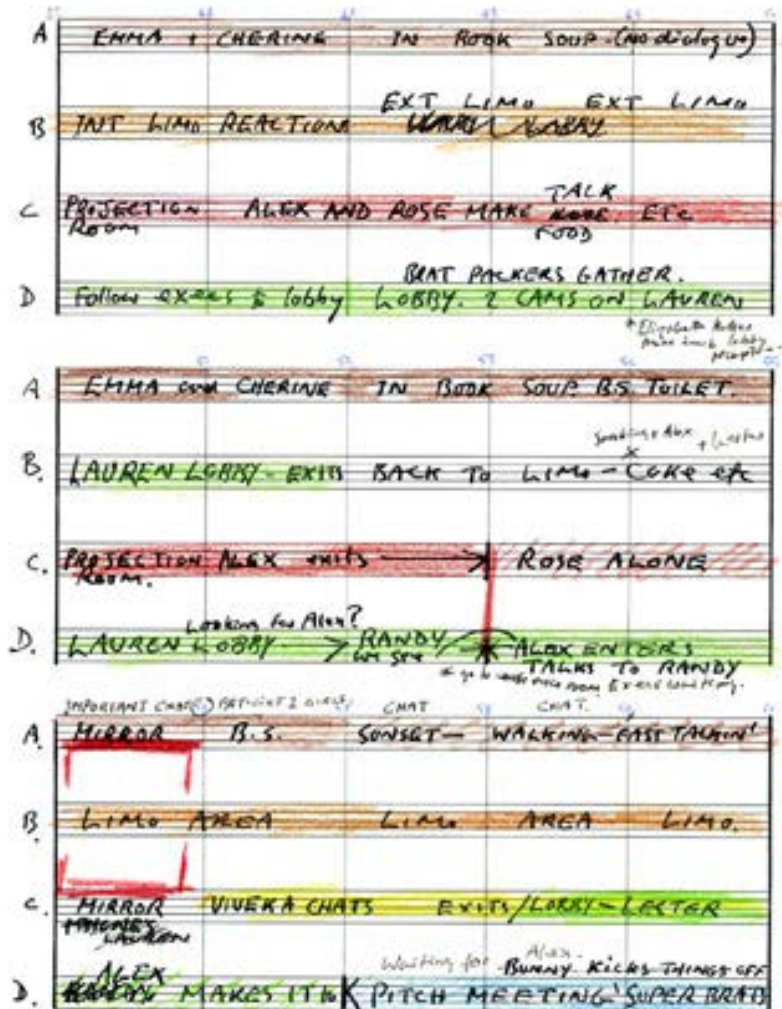 A EMMA + CHERINE IN BOOK SOUP (no dialogue)
EXT LIMO EXT LIMO
B INT LIMO REACTION LOBBY
TALK
C PROJECTION ALEX AND ROSE MAKE ETC
ROOM FOOD
BRAT PACKERS GATHER.
D Follow execs to lobby LOBBY. 2 CAMS ON LAUREN
lobby
A EMMA and CHERINE IN BOOK SOUP B.S. TOILET.
B. LAUREN LOBBY - EXITS BACK TO LIMO - COKE etc
C. PROJECTION ALEX exits ROSE ALONE
ROOM.
Looking for Alex?
D. LAUREN LOBBY RANDY ALEX ENTERS
TALKS TO RANDY
IMPORTANT 2 GIRLS CHAT CHAT.
A. MIRROR B.S. SUNSET - WALKING - FAST TALKIN'
B. LIMO AREA LIMO AREA LIMO.
C. MIRROR VIVEKA CHATS EXITS/LOBBY - LESTER
LAUREN
Waiting for Alex.
ALEX BUNNY KICKS THINGS OFF
D. MAKES IT to PITCH MEETING 'SUPER BRATS